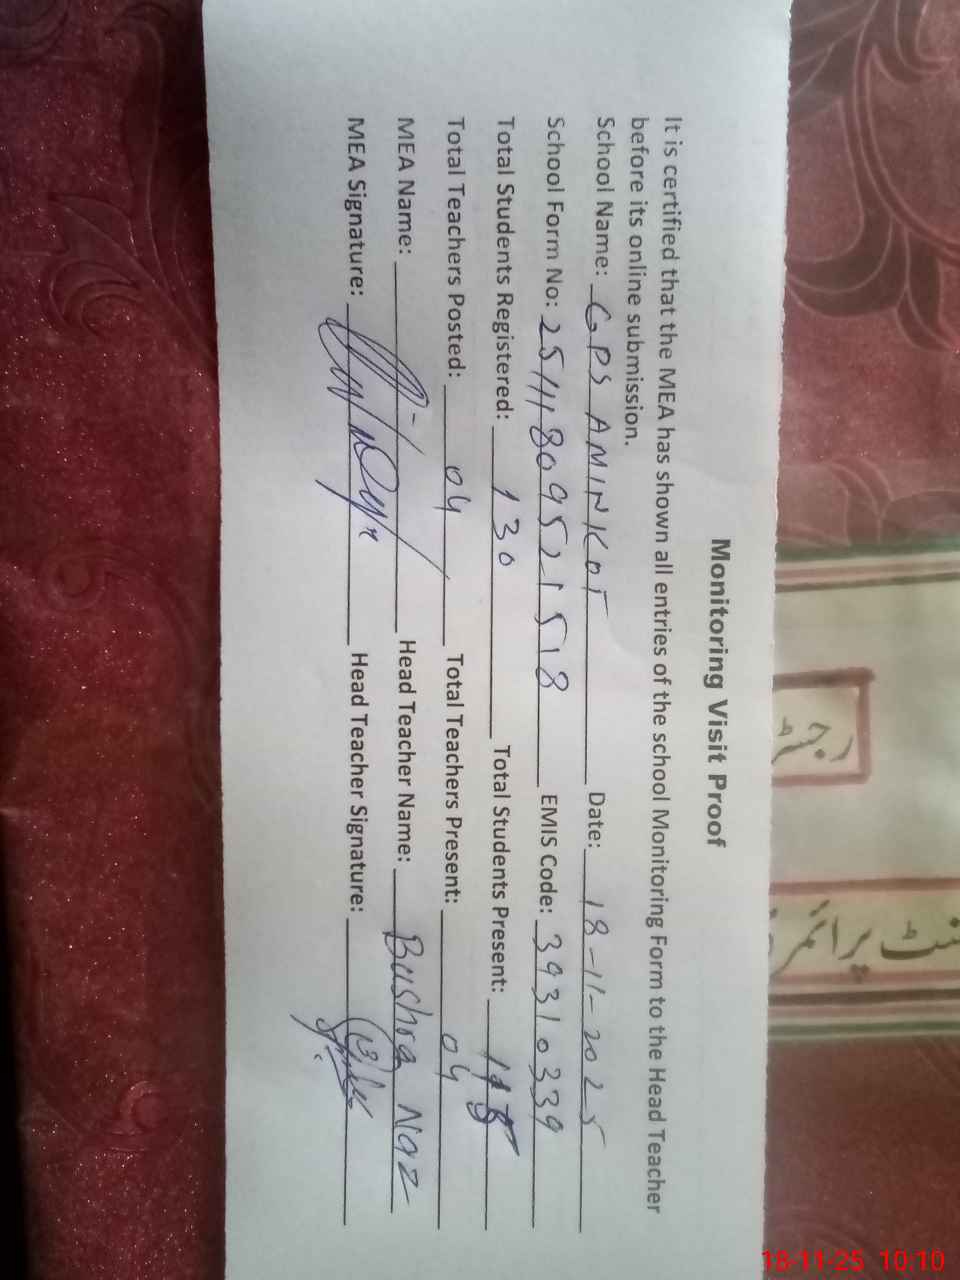 Monitoring Visit Proof
It is certified that the MEA has shown all entries of the school Monitoring Form to the Head Teacher
before its online submission.
School Name: GPS AMINKOT Date: 18-11-2025
School Form No: 25111809521518 EMIS Code: 39310339
Total Students Registered: 130 Total Students Present:
Total Teachers Posted: 04 Total Teachers Present: 04
MEA Name: Head Teacher Name: Bushra Naz
MEA Signature: Head Teacher Signature:
رجسٹر
پرائمر
18-11-25 10:10